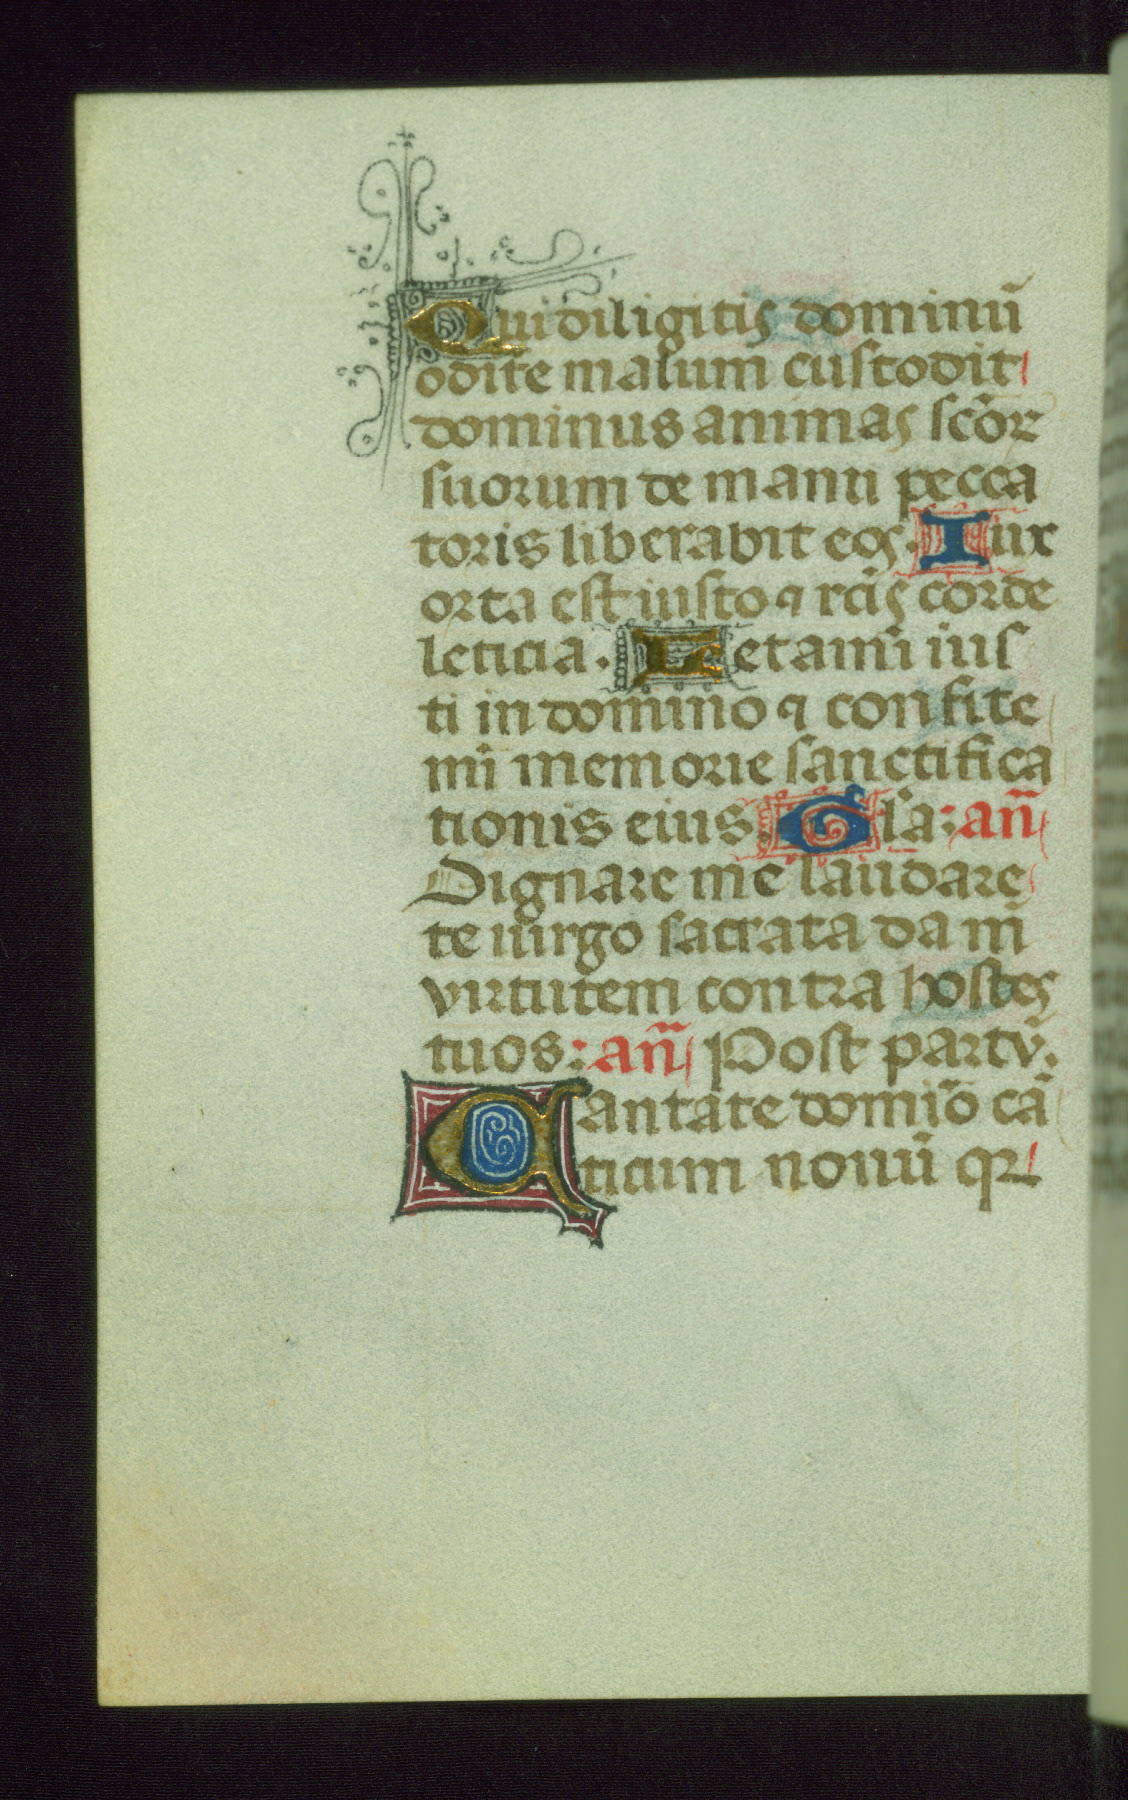 Qui diligitis dominū
odite malum custodit
dominus animas sc̄oꝝ
suorum de manu pecca
toris liberabit eos. Iux
orta est iusto ⁊ rc̄is corde
leticia. Letamīi ius
ti in domino ⁊ confite
mī memorie sanctifica
tionis eius. Gl̄a: an̄
Dignare me laudare
te uirgo sacrata da m̄
virtutem contra hostes
tuos: an̄ Post partū.
Cantate domīo cā
ticum nouū qꝛ